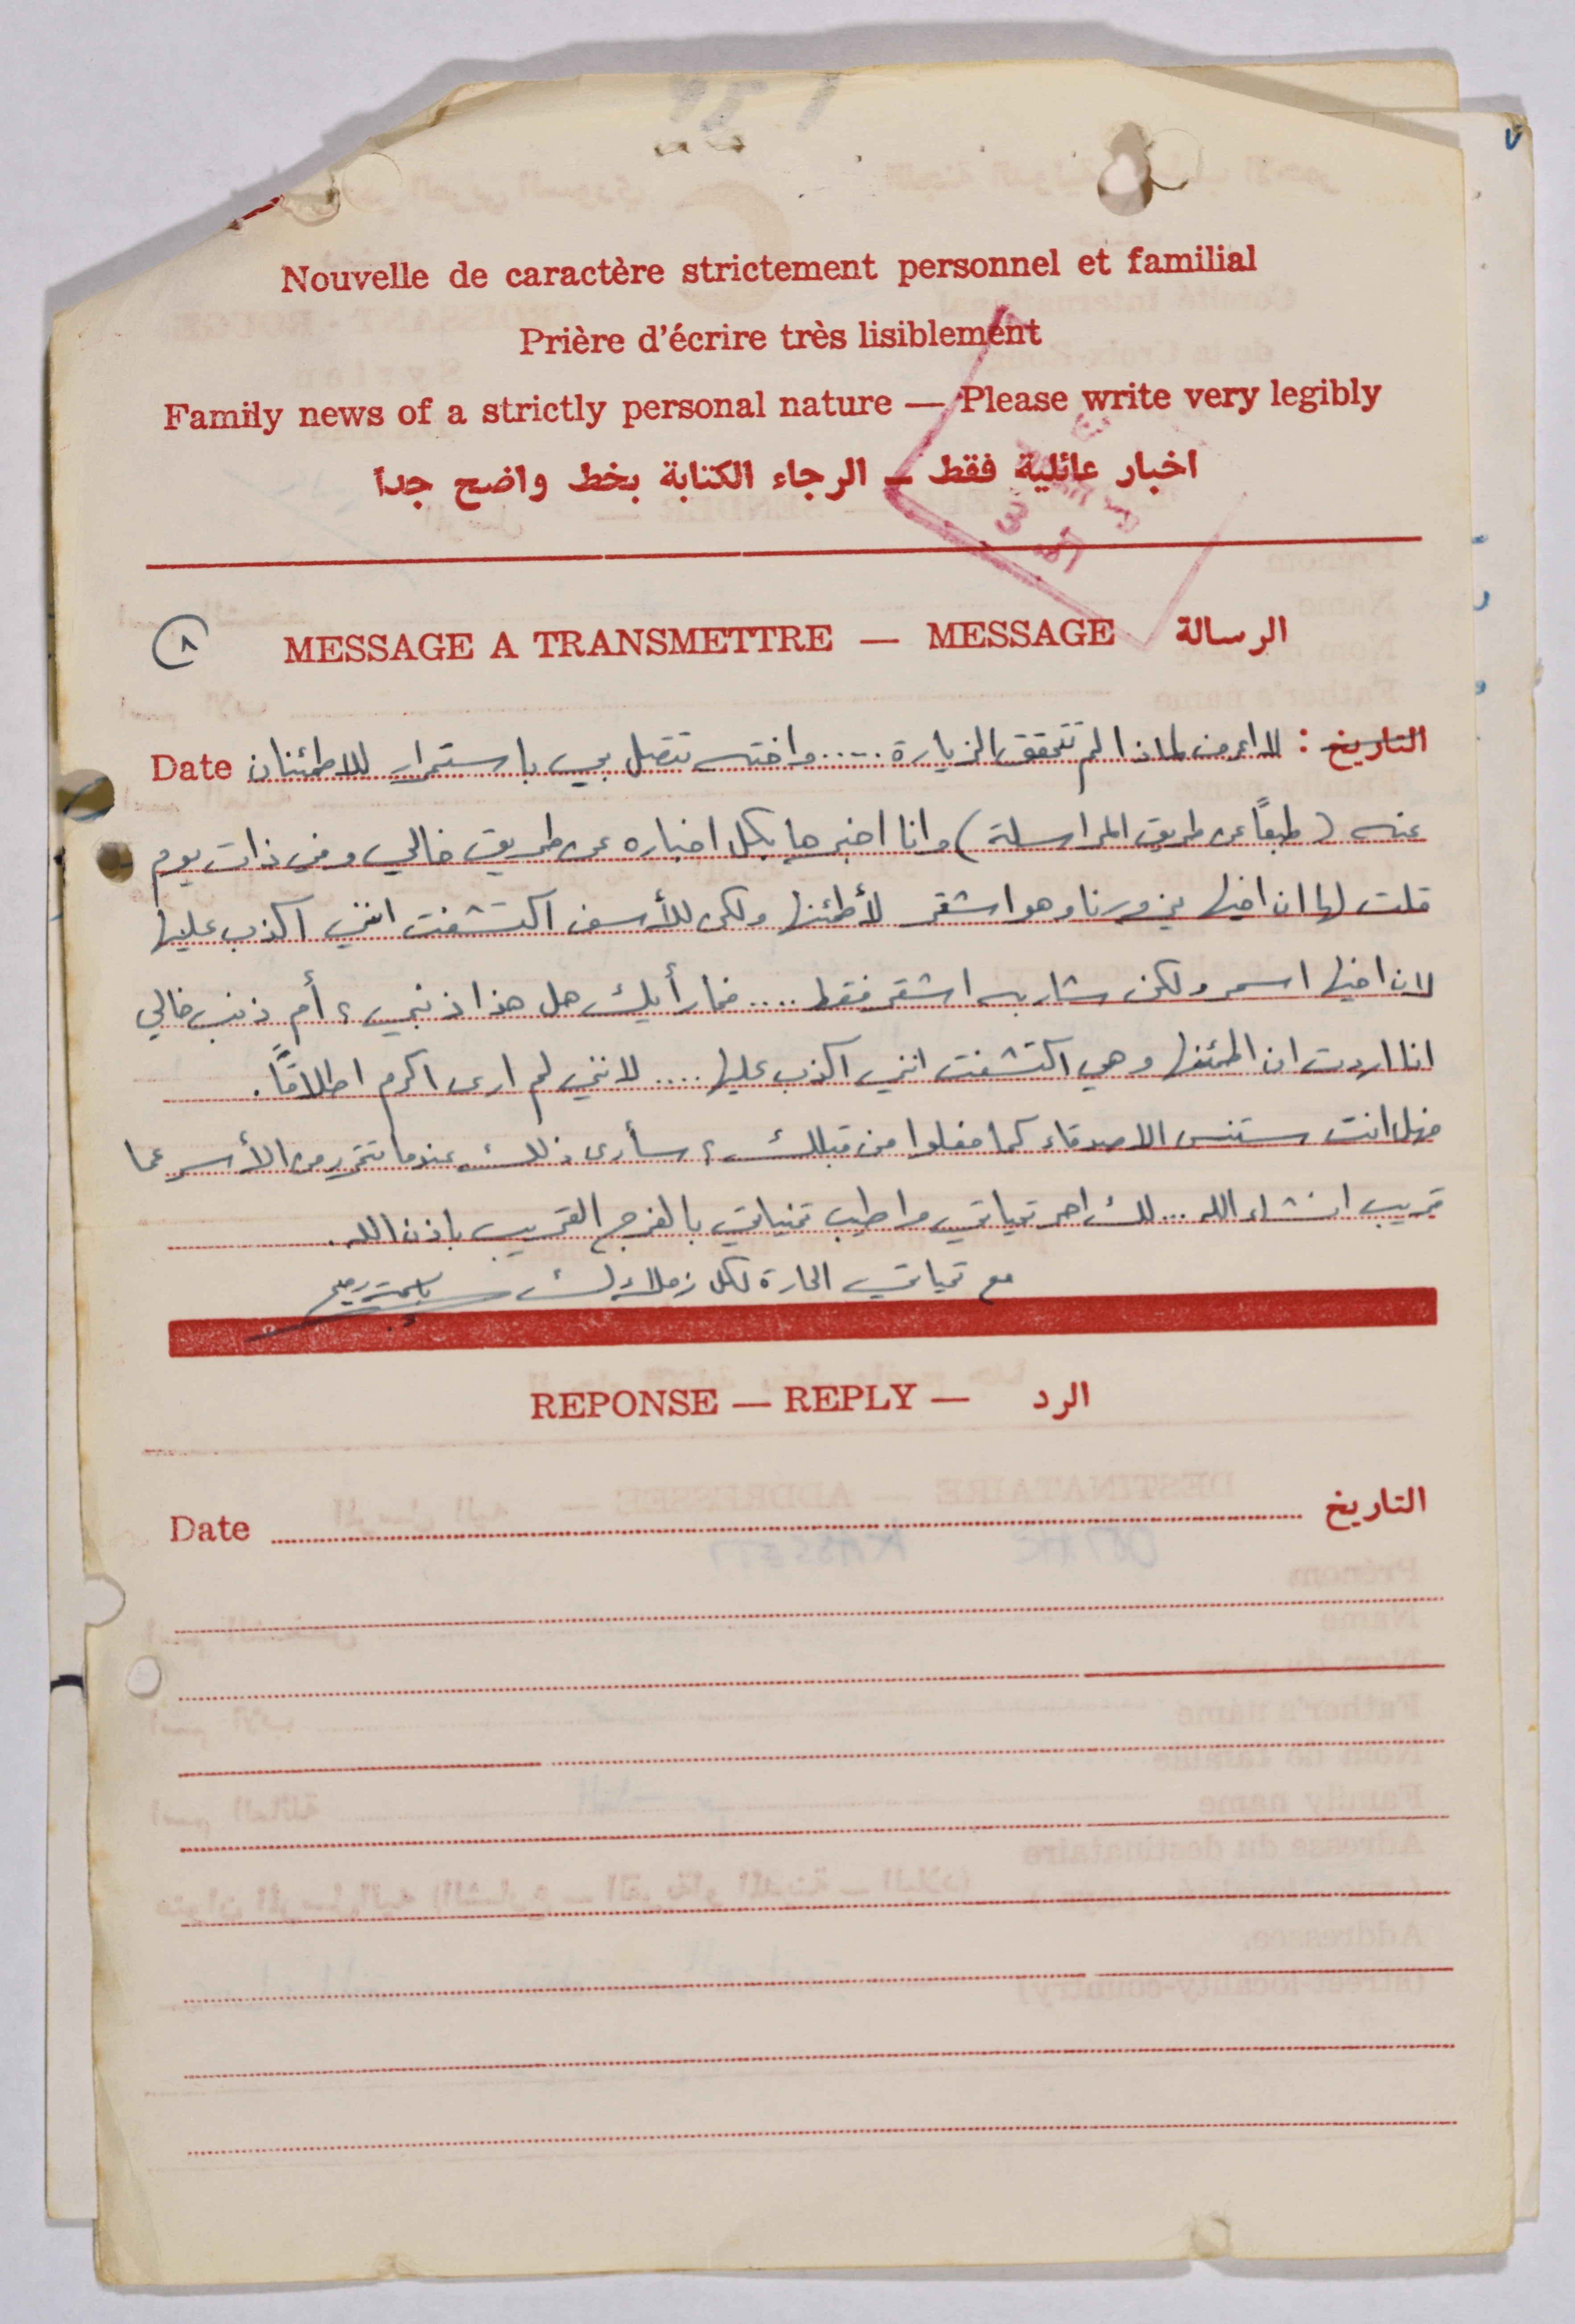 Nouvelle de caractère strictement personnel et familial
Prière d'écrire très lisiblement
Family news of a strictly personal nature — Please write very legibly
اخبار عائلية فقط — الرجاء الكتابة بخط واضح جداً
٨
MESSAGE A TRANSMETTRE — MESSAGE الرسالة
التاريخ : لا اعرف لماذا لم تتحقق الزيارة ..... واخته تتصل بي باستمرار للاطمئنان Date
عنه (طبعاً عن طريق المراسلة) وانا اخبرها بكل اخباره عن طريق خالي وفي ذات يوم
قلت لها ان اخيها يزورنا وهو اشقر لأطمئنها ولكن للأسف اكتشفت انني اكذب عليها
لان اخيها اسمر ولكن شاربه اشقر فقط .... فما رأيك هل هذا ذنبي ؟ أم ذنب خالي
انا اردت ان اطمئنها وهي اكتشفت انني اكذب عليها .... لانني لم ارى اكرم اطلاقاً.
فهل انت ستنسى الاصدقاء كما فعلوا من قبلك ؟ سأرى ذلك عندما تتحرر من الأسر عما
قريب انشاء الله ... لك احر تحياتي واطيب تمنياتي بالفرج القريب باذن الله.
مع تحياتي الحارة لكل زملائك
REPONSE — REPLY — الرد
Date التاريخ